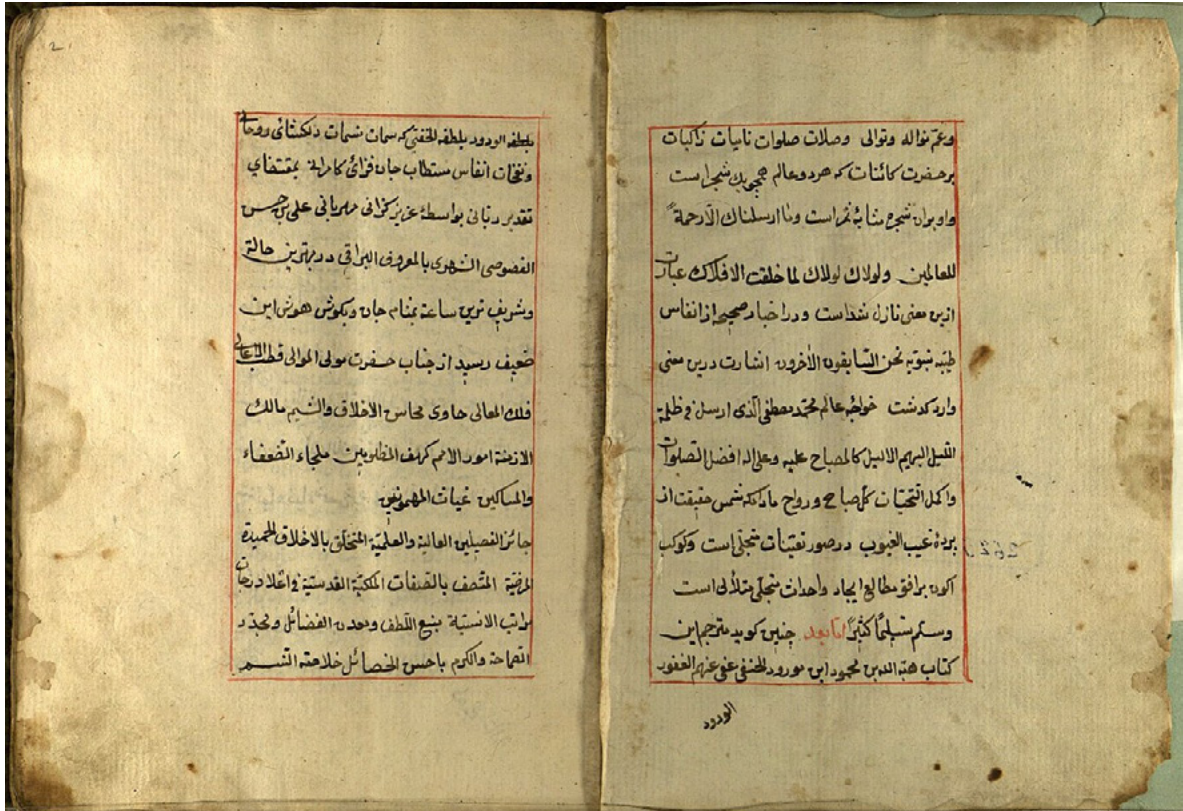 وعمّ نواله وتوالى وصلات صلوات ناميات زاكيات
بر حضرت كائنات كه هر دو عالم همچو يك شجر است
واو بران شجره مثابهٔ ثمر است وما ارسلناك الّا رحمة
للعالمين ولولاك لولاك لما خلقت الافلاك عبارت
ازين معنى نازل شداست ودر اخبار صحيحه از انفاس
طيّبه نبويه نحن السّابقون الأخرون اشارت درين معنى
وارد كدشت خواجه عالم محمّد مصطفى الّذى ارسل فى ظلمة
اللّيل البهيم الاليل كالمصباح عليه وعلى اله افضل الصّلوات
واكمل التّحيّات كلّ صباح ورواح مادامكه شمس حقيقت از
پردهٔ غيب الغيوب در صور تعيّنات متجلّى است وكوكب
اكون بر افق مطالع ايجاد واحداث متجلّى متلألى است
وسلّم تسليمًا كثيرًا امّا بعد چنين كويد مترجم اين
كتاب هبة الله بن محمود ابن مورود الحنفى عفى عنهم الغفور
الودود
2
بلطفه الودود بلطفه الخفى كه سمات نسمات دلكشائى روحانى
ونفحات انفاس مستطاب جان فزاى كامرانى بمقتضاي
تقدير ربّانى بواسطهٔ عزيز كرانى مهربانى على بن حسن
القصوصى الشهرى بالمعروف البراقى در بهترين حالة
وشريف ترين ساعة بمشام جان وبكوش هوش اين
ضعيف رسيد از جناب حضرت مولى الموالى قطب الاعالى
فلك المعالى حاوى محاسن الاخلاق والشّيم مالك
الازمّة امور الامم كهف المظلومين ملجاء الضّعفاء
والمساكين غياث المهمومين
حائز الفضيلين العالية والعلميّة المتخلّق بالاخلاق الحميدة
المرضيّة المتّصف بالصّفات الملكيّة القدسيّة فى اعلا درجات
مراتب الانسيّة منبع اللّطف ومعدن الفضائل ومحدّد
السّماحة والكرم باحسن الخصائل خلاصة النسم